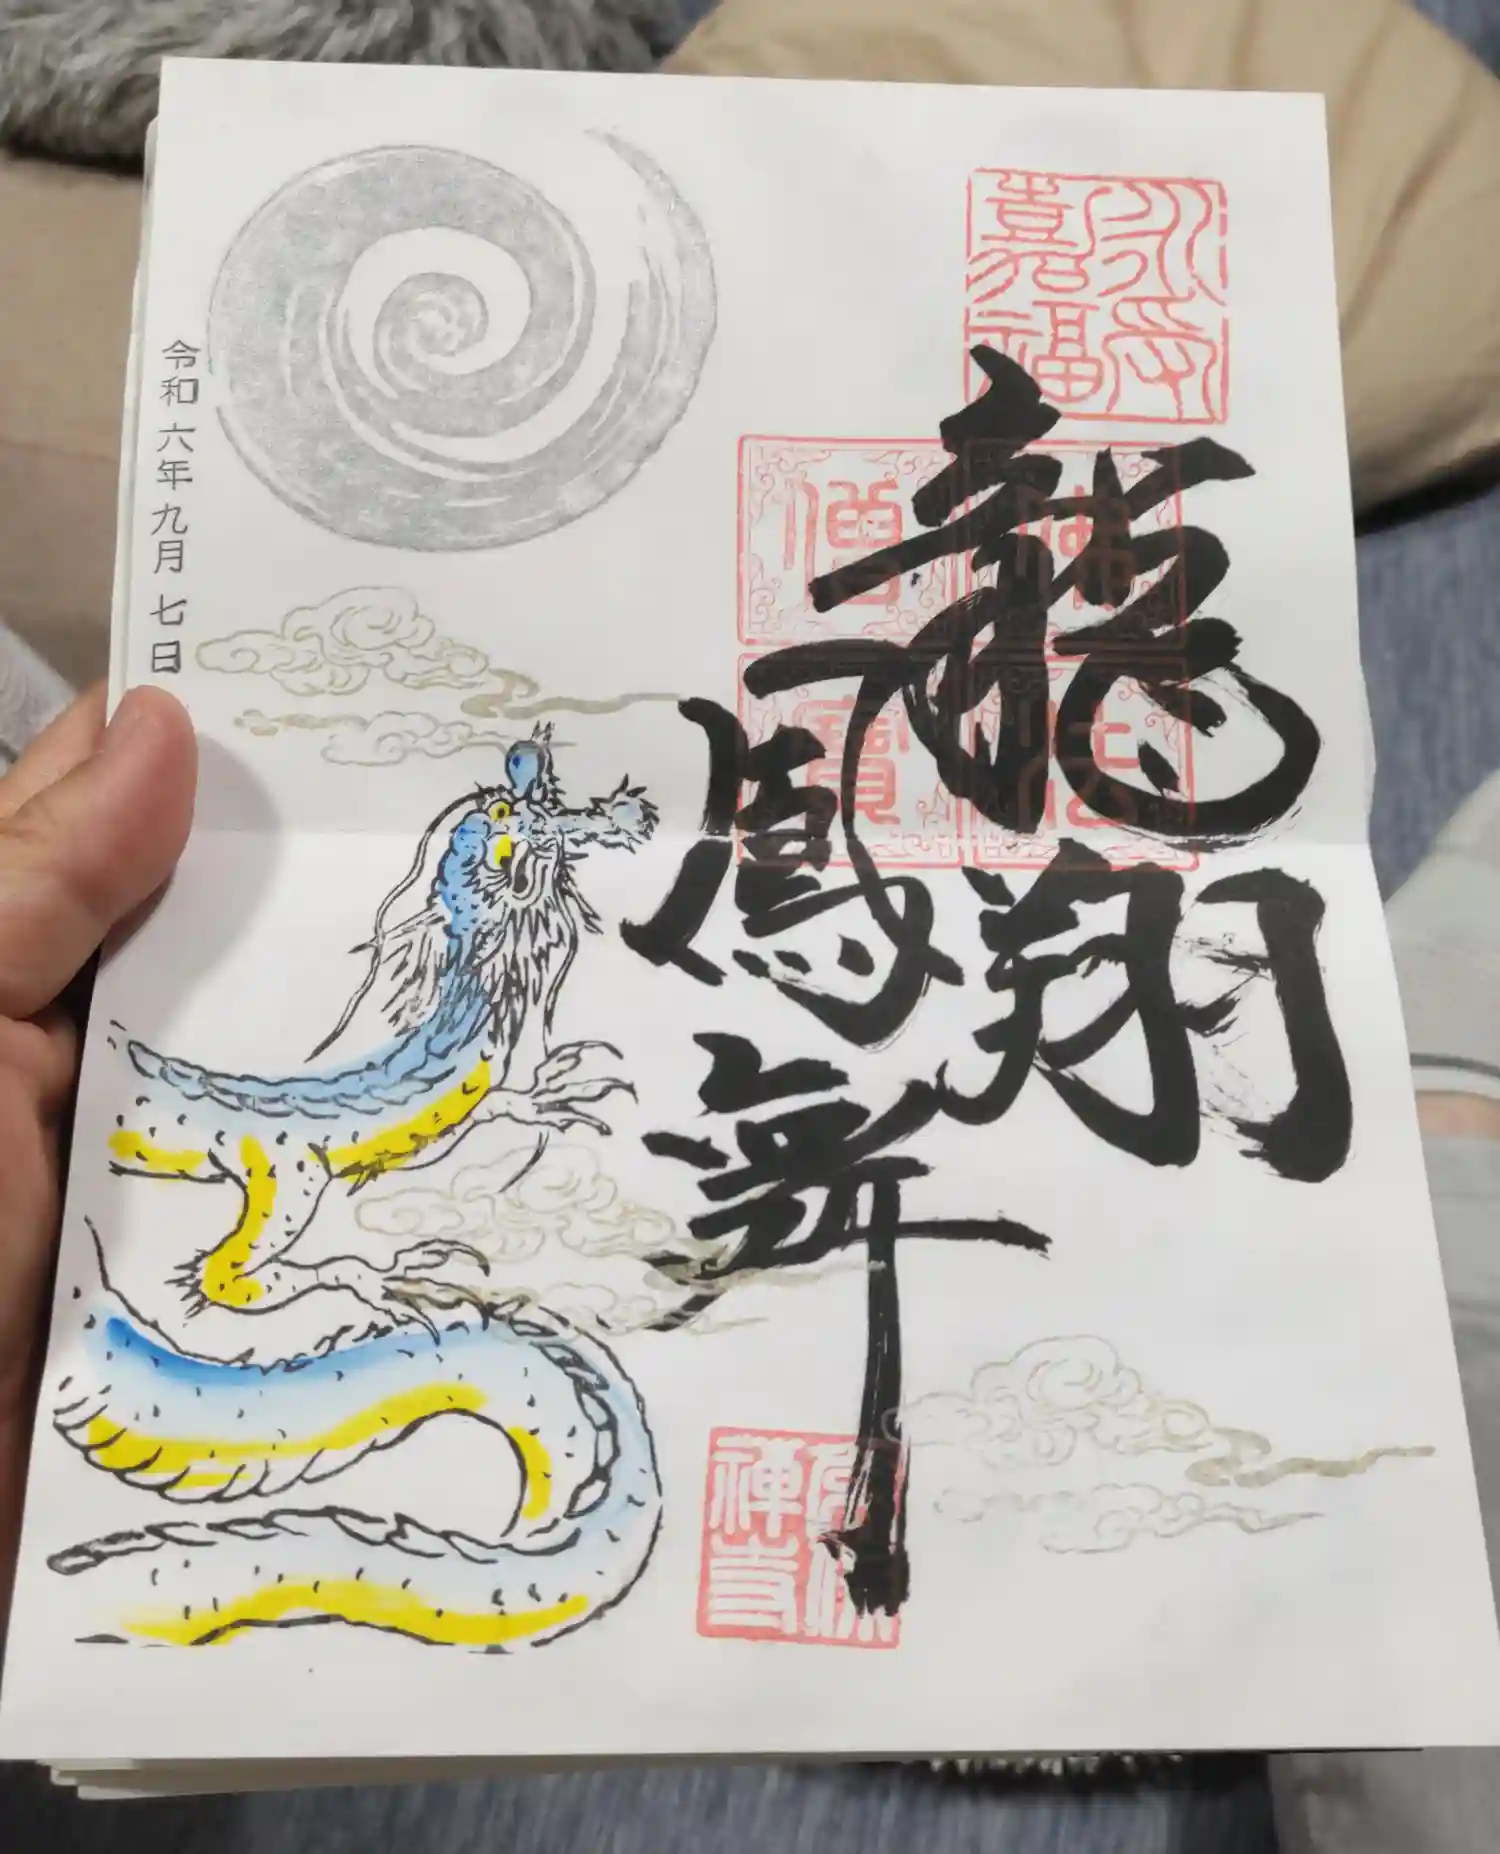 永受
嘉福
佛法
僧寶
龍翔
鳳舞
禅寺
令和六年九月七日